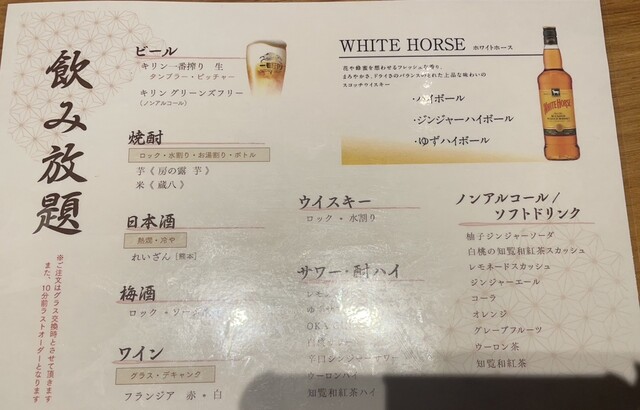 飲み放題
※ご注文はグラス交換時とさせて頂きます
また、10分前ラストオーダーとなります
ビール
キリン一番搾り 生
タンブラー・ピッチャー
キリン グリーンズフリー
（ノンアルコール）
焼酎
ロック・水割り・お湯割り・ボトル
芋《 房の露 芋 》
米《 蔵八 》
日本酒
熱燗・冷や
れいざん［熊本］
梅酒
ロック・ソーダ
ワイン
グラス・デキャンタ
フランジア 赤・白
WHITE HORSE ホワイトホース
花や蜂蜜を想わせるフレッシュな香り、
まろやかさ、ドライさのバランスのとれた上品な味わいの
スコッチウイスキー
・ハイボール
・ジンジャーハイボール
・ゆずハイボール
WHITE HORSE
ウイスキー
ロック・水割り
サワー・酎ハイ
レモン
ゆず
辛口ジンジャーサワー
ウーロンハイ
知覧和紅茶ハイ
ノンアルコール/
ソフトドリンク
柚子ジンジャーソーダ
白桃の知覧和紅茶スカッシュ
レモネードスカッシュ
ジンジャーエール
コーラ
オレンジ
グレープフルーツ
ウーロン茶
知覧和紅茶